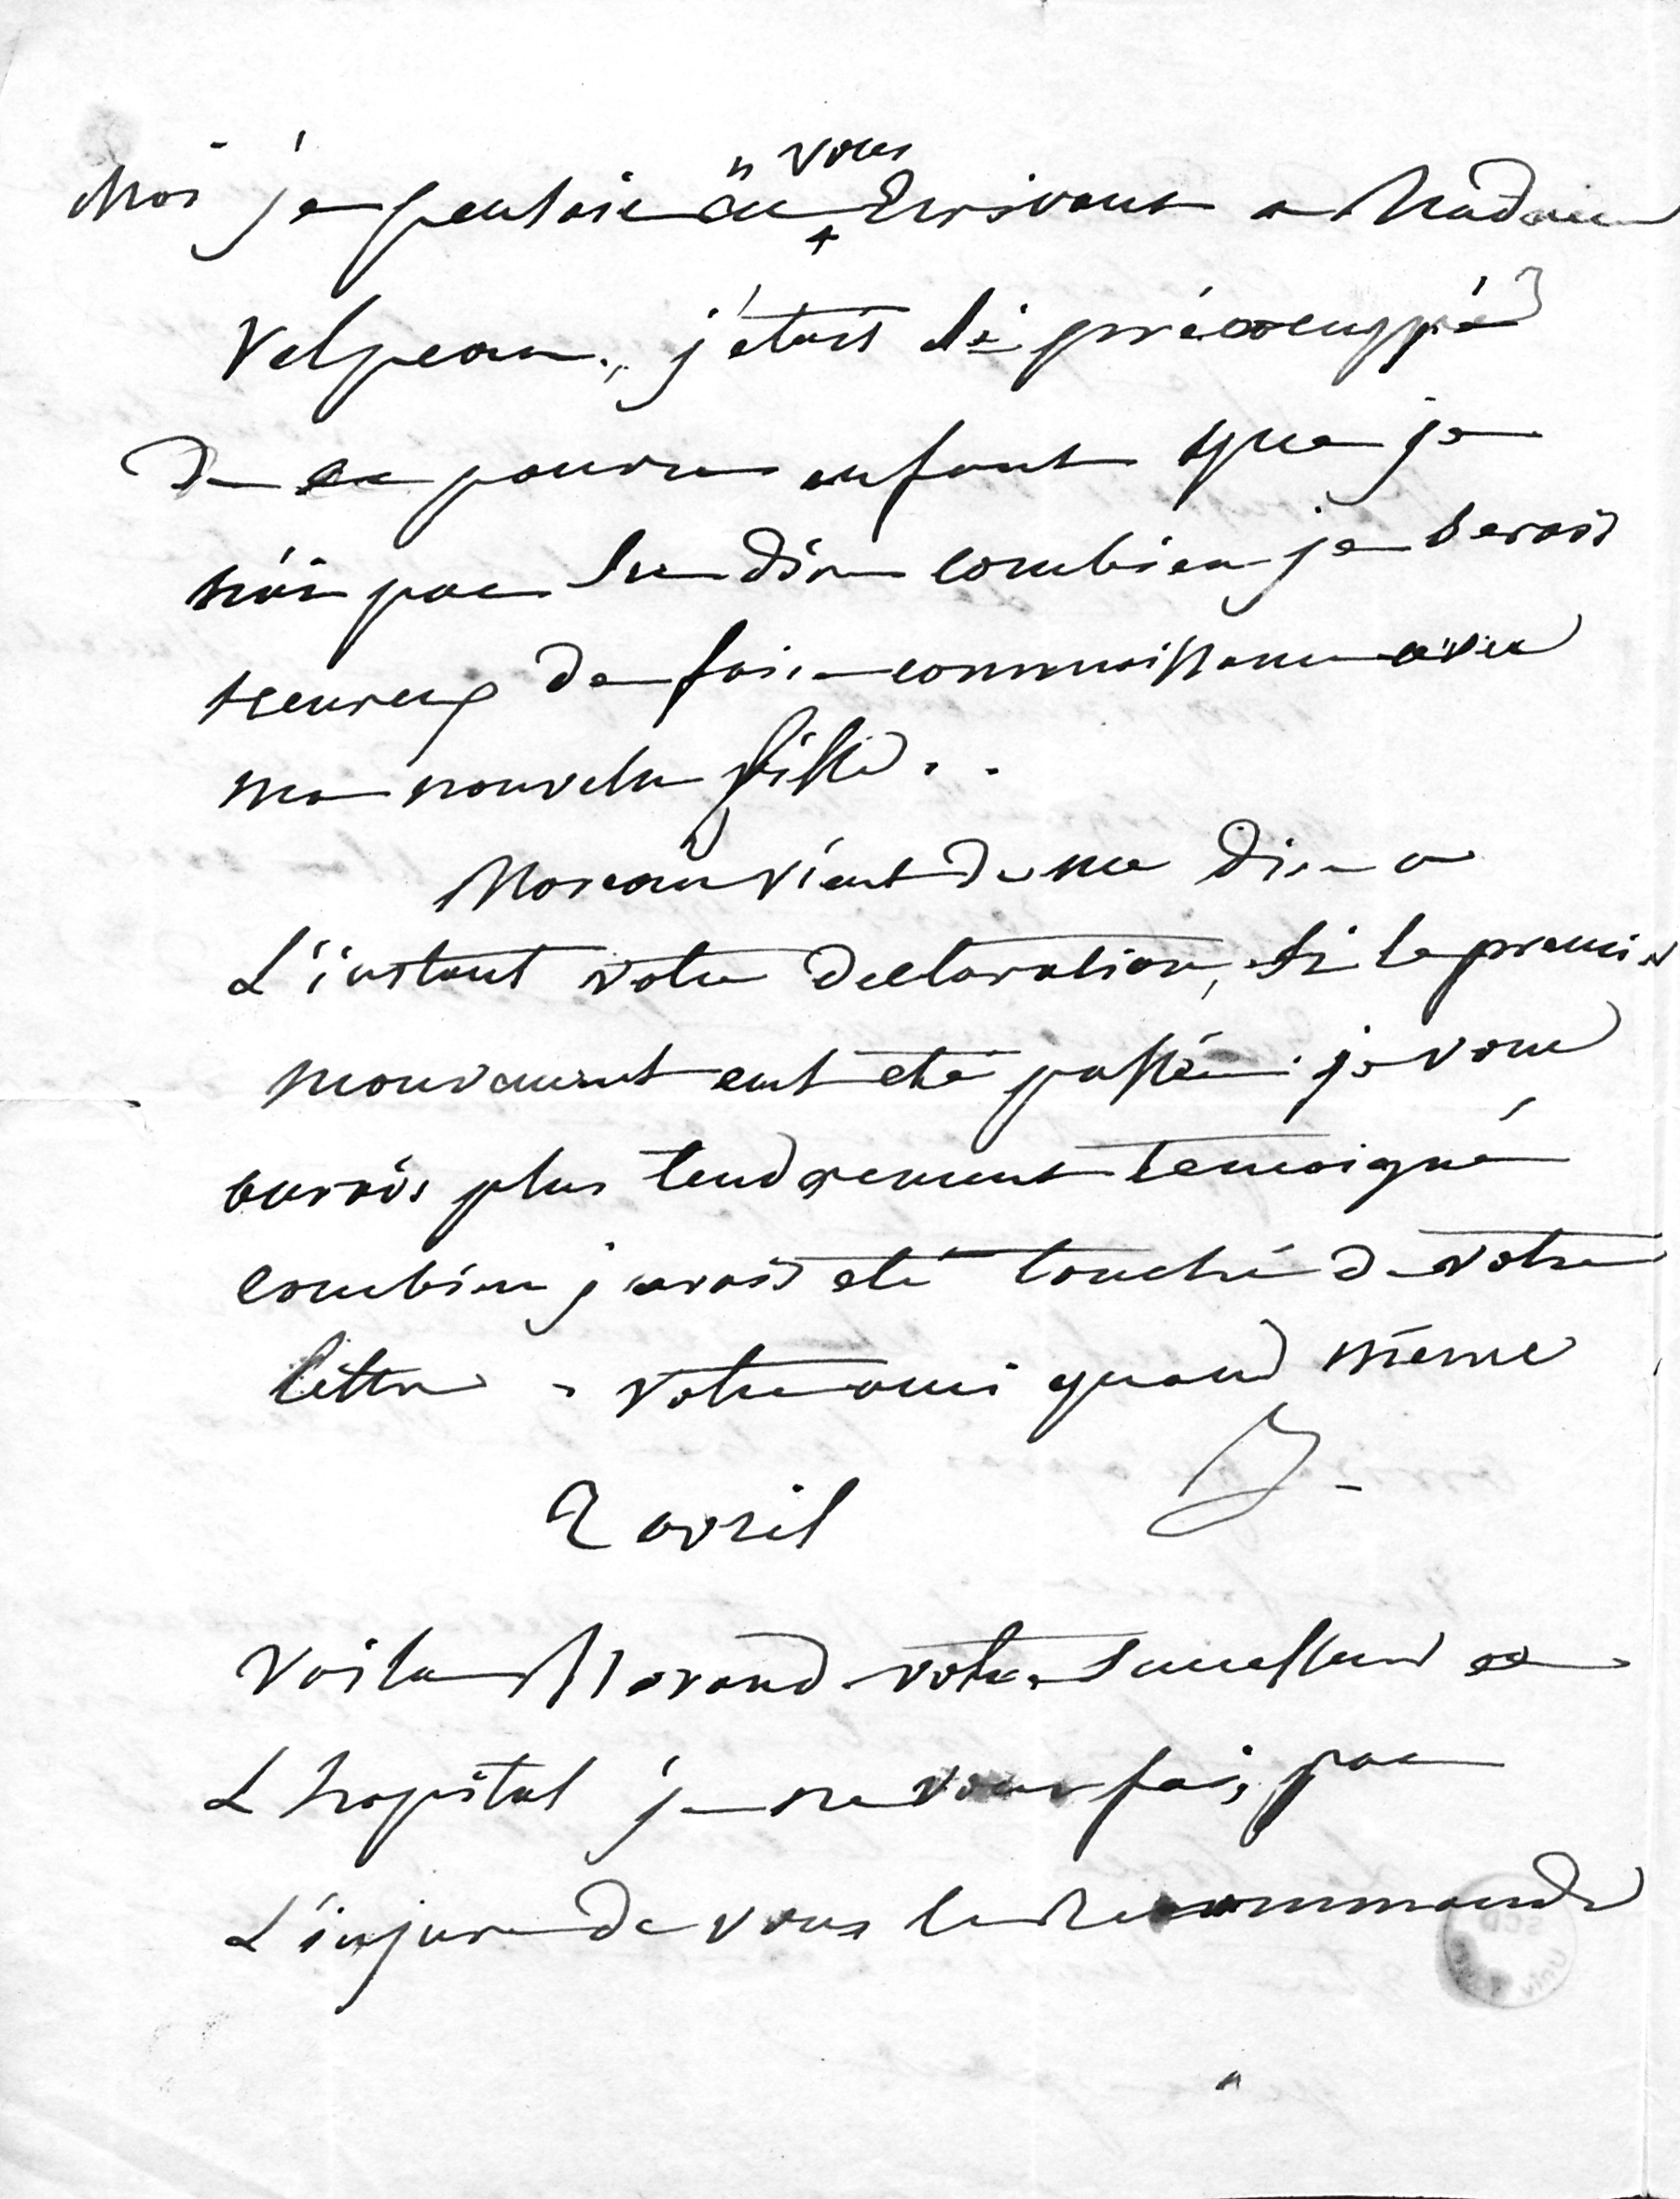 vous
Moi je pensais en Ecrivant a Madame
Velpeau., j'étais si préoccuppé
De ce pauvre enfant que je
n'ai pas su dire combien je serais
heureux de faire connaissance avec
ma nouvelle fille..
Moreau vient de me dire a
L'instant votre declaration, si le premier
mouvement eut eté passé je vous
aurais plus tendrement temoigné
combien j'avais eté touché de votre
lettre. votre ami quand même
B-
2 avril
Voila Morand votre successeur a
L'hopital je ne vous fais pas
L'injure de vous le Recommander